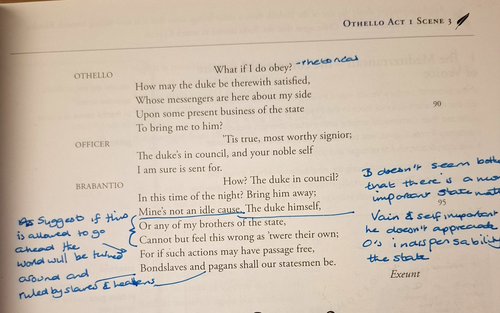 OTHELLO ACT 1 SCENE 3
OTHELLO What if I do obey? - rhetorical
How may the duke be therewith satisfied,
Whose messengers are here about my side
Upon some present business of the state 90
To bring me to him?
OFFICER 'Tis true, most worthy signior;
The duke's in council, and your noble self
I am sure is sent for.
BRABANTIO How? The duke in council?
In this time of the night? Bring him away;
Mine's not an idle cause. The duke himself, 95
Or any of my brothers of the state,
Cannot but feel this wrong as 'twere their own;
For if such actions may have passage free,
Bondslaves and pagans shall our statesmen be.
Exeunt
Suggest if this
is allowed to go
ahead the
world will be turned
around and
ruled by slaves &
B doesn't seem
that there's a
important state
Vain & self important
he doesn't appreciate
O's indispensability
the state